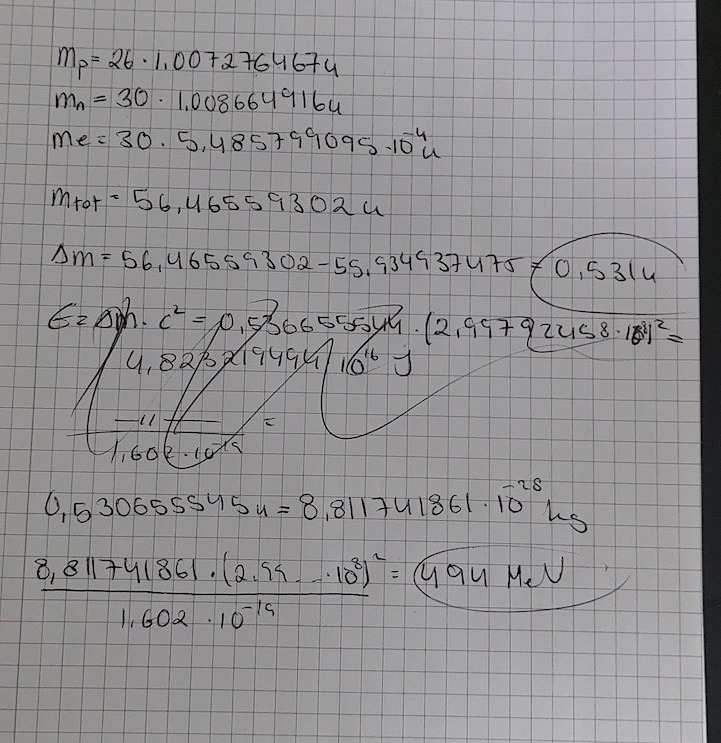 mp = 26 · 1,007276467u
mn = 30 · 1,008664916u
me = 30 · 5,485799095 · 10⁻⁴u
mtot = 56,46559302 u
Δm = 56,46559302 - 55,934937475 = 0,531u
E = Δm · c² = 0,536655544 · (2,99792458 · 10⁸)² =
4,823219494 · 10¹⁶ J
—11— =
1,602 · 10⁻¹⁹
0,530655545u = 8,811741861 · 10⁻²⁸ kg
8,811741861 · (2,99... · 10⁸)² = 494 MeV
1,602 · 10⁻¹⁹